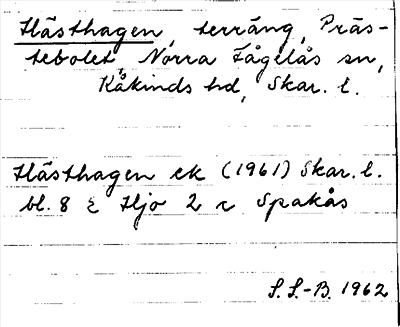 Hästhagen, terräng, Präs-
tebolet Norra Fågelås sn,
Kåkinds hd, Skar. l.
Hästhagen ek (1961) Skar. l.
bl. 8 Hjo 2 c Spakås
S. S.-B. 1962